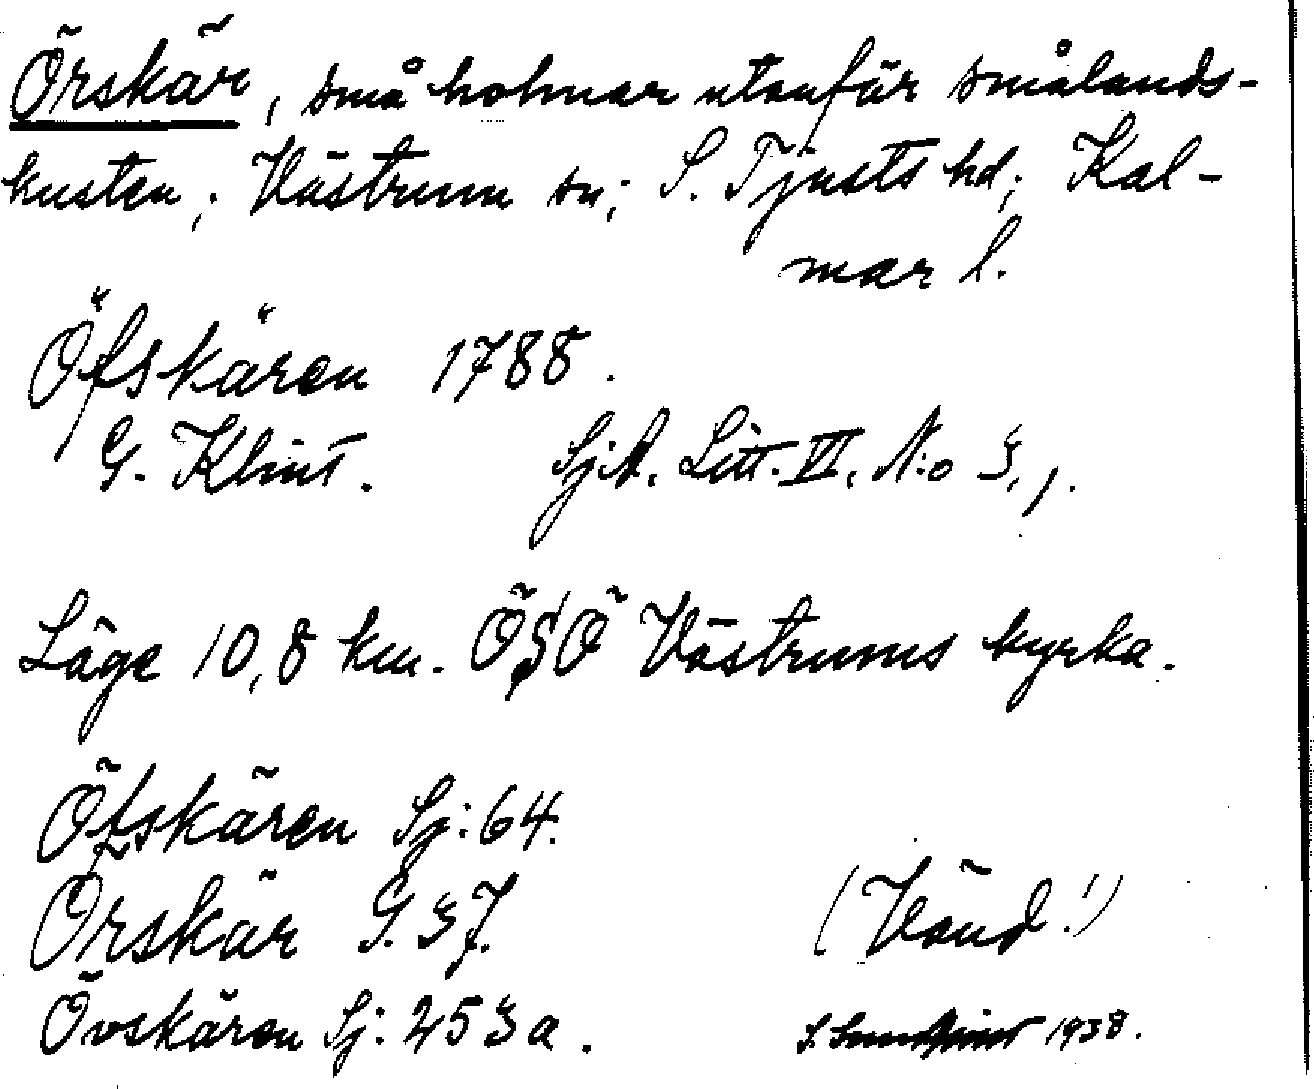 Örskär, små holmar utanför smålands-
kusten; Västrum sn; S. Tjusts hd; Kal-
mar l.
Öfskären 1788.
G. Klint. SjA. Litt. VI. N:o 3, 1.
Läge 10,8 km. ÖSÖ Västrums kyrka.
Öfskären Sj: 64.
Orskär G. 37.
Övskären Sj: 253a.
(Vänd!)
S. 1938.